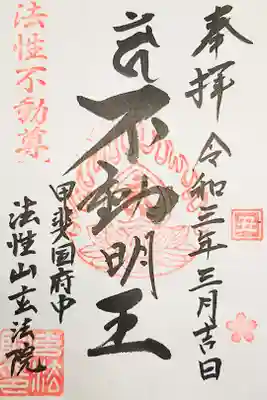 奉拝
令和三年三月吉日
丑
不動明王
甲斐国府中
法性山玄法院
法性不動尊